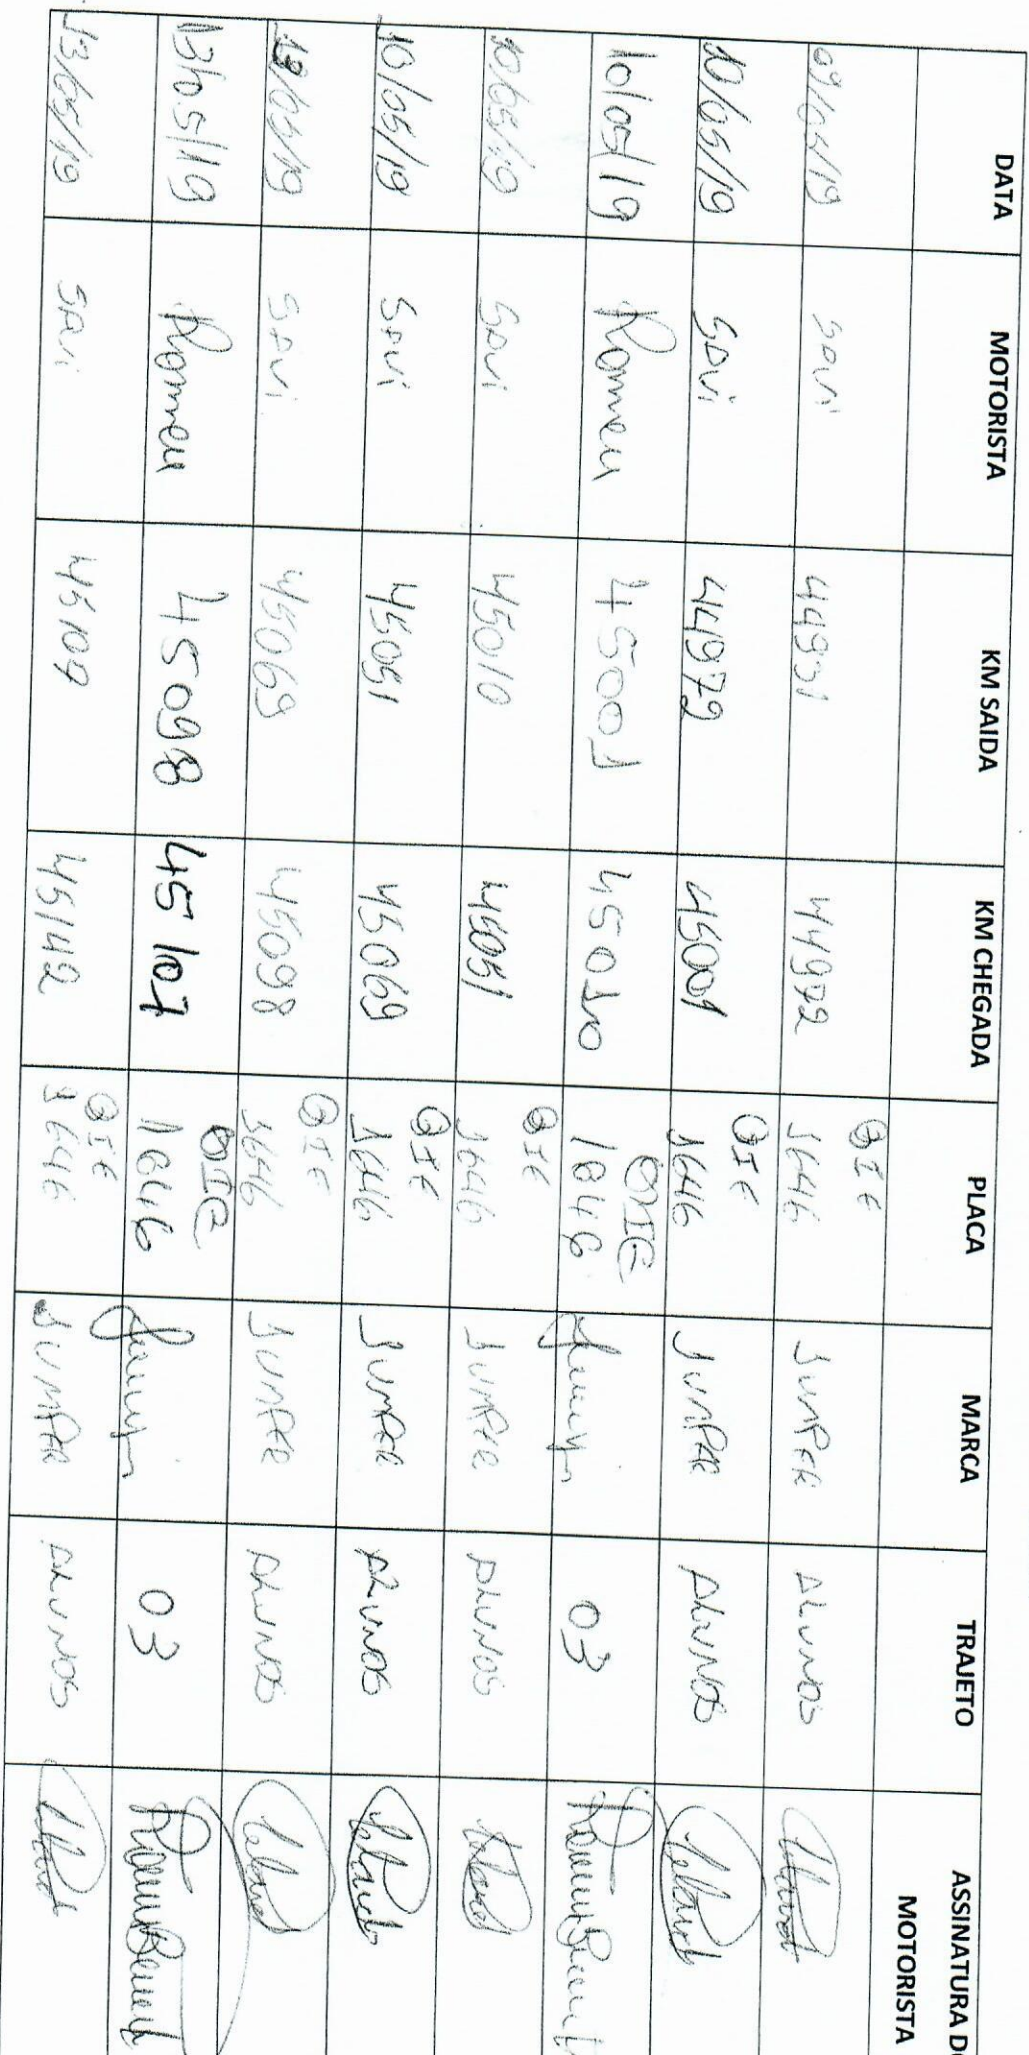 DATA MOTORISTA KM SAIDA KM CHEGADA PLACA MARCA TRAJETO ASSINATURA DO
MOTORISTA
09/05/19 SAVI 44931 44972 QIE 1646 JUMPER ALUNOS
10/05/19 SAVI 44972 45001 QIE 1646 JUMPER ALUNOS
10/05/19 Romeu 45001 45010 QIE 1646 03
10/05/19 SAVI 45010 45051 QIE 1646 JUMPER ALUNOS
10/05/19 SAVI 45051 45069 QIE 1646 JUMPER ALUNOS
13/05/19 SAVI 45069 45098 QIE 1646 JUMPER ALUNOS
13/05/19 Romeu 45098 45107 QIE 1646 03
13/05/19 SAVI 45107 45142 QIE 1646 JUMPER ALUNOS